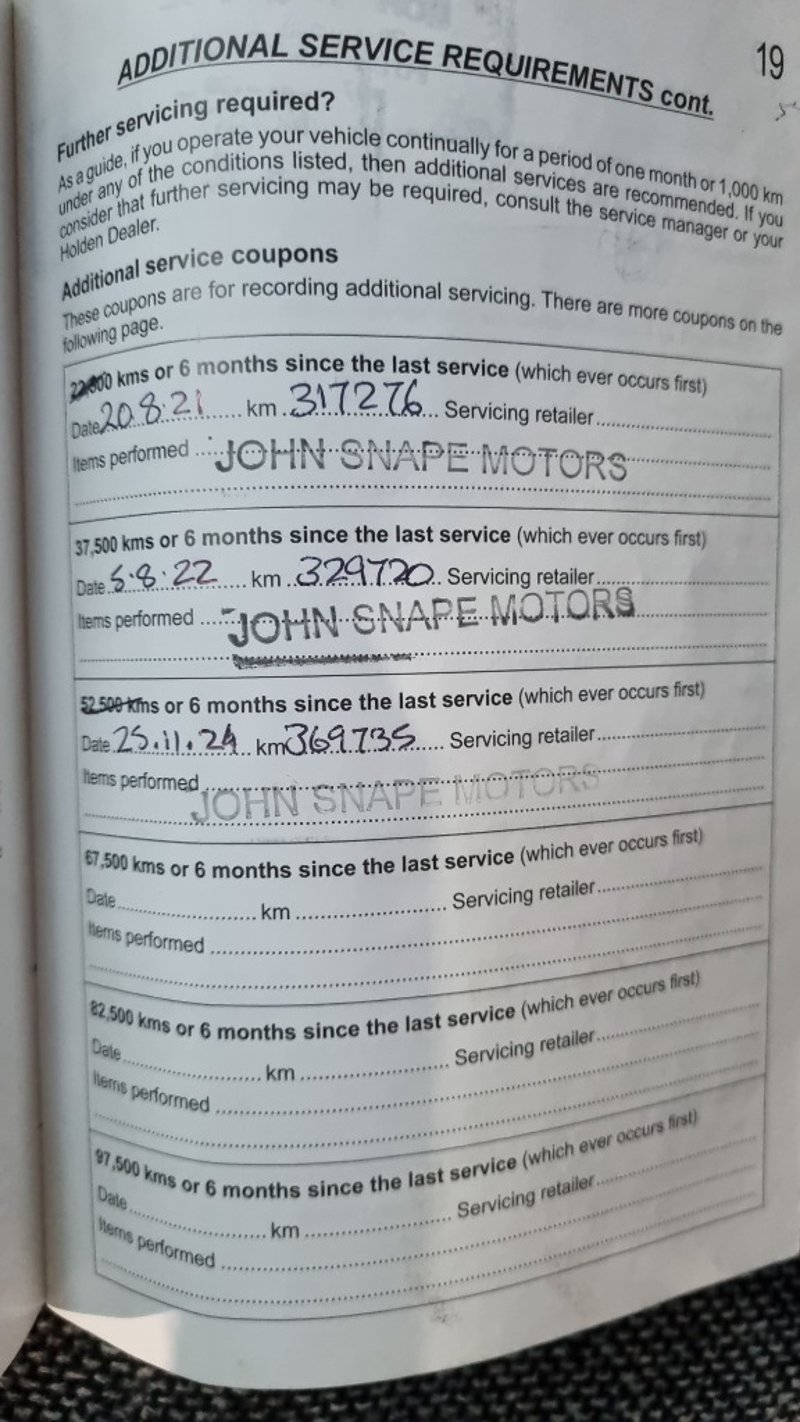 ADDITIONAL SERVICE REQUIREMENTS cont.
19
Further servicing required?
As a guide, if you operate your vehicle continually for a period of one month or 1,000 km
under any of the conditions listed, then additional services are recommended. If you
consider that further servicing may be required, consult the service manager or your
Holden Dealer.
Additional service coupons
These coupons are for recording additional servicing. There are more coupons on the
following page.
kms or 6 months since the last service (which ever occurs first)
Date 20.8.21 km 317276 Servicing retailer
Items performed JOHN SNAPE MOTORS
37,500 kms or 6 months since the last service (which ever occurs first)
Date 5.8.22 km 329720 Servicing retailer
Items performed JOHN SNAPE MOTORS
52,500 kms or 6 months since the last service (which ever occurs first)
Date 25.11.24 km 369735 Servicing retailer
Items performed
JOHN SNAPE MOTORS
67,500 kms or 6 months since the last service (which ever occurs first)
Date km Servicing retailer
Items performed
82,500 kms or 6 months since the last service (which ever occurs first)
Date km Servicing retailer
Items performed
97,500 kms or 6 months since the last service (which ever occurs first)
Date km Servicing retailer
Items performed